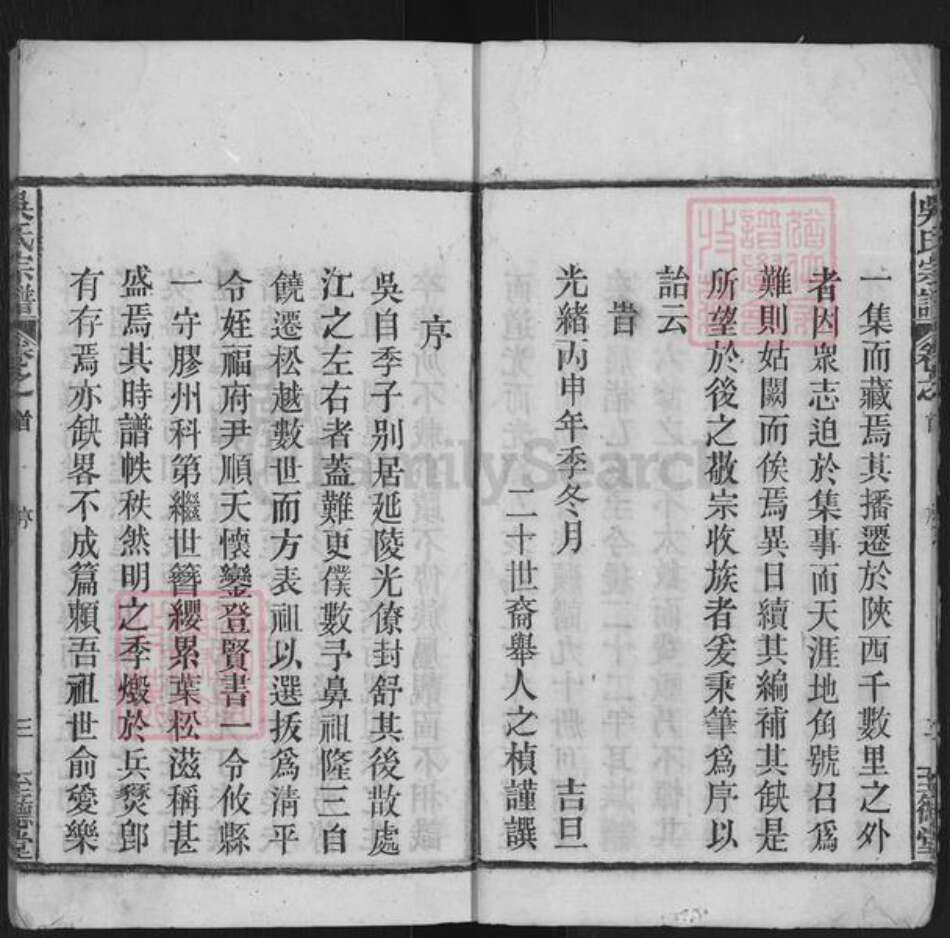 一集而藏焉其播遷於陝西千數里之外
者因衆志迫於集事而天涯地角號召爲
難則姑闕而俟焉異日續其編補其缺是
所望於後之敬宗收族者爰秉筆爲序以
詒云
旹
光緒丙申年季冬月 吉旦
二十世裔舉人之楨謹譔
序
吳自季子别居延陵光僚封舒其後散處
江之左右者蓋難更僕數予鼻祖隆三自
饒遷松越數世而方表祖以選拔爲清平
令姪福府尹順天懷鑾登賢書一令攸縣
一守膠州科第繼世簪纓累葉松滋稱甚
盛焉其時譜帙秩然明之季燬於兵燹卽
有存焉亦缺畧不成篇賴吾祖世俞爰樂
吳氏宗譜
卷之首
序
三
至德堂
FamilySearch